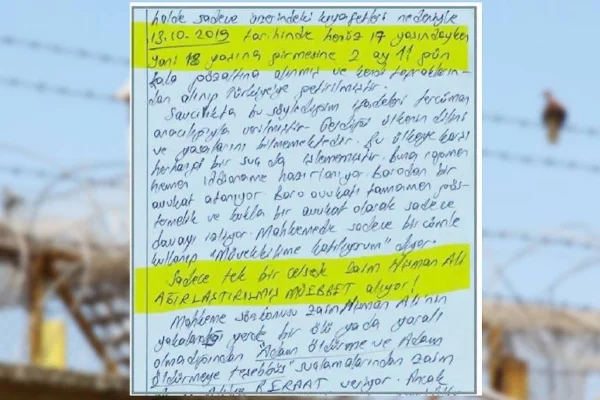 halde sadece üzerindeki kıyafetleri nedeniyle
13.10.2019 tarihinde henüz 17 yaşındayken
yani 18 yaşına girmesine 2 ay 11 gün
kala gözaltına alınmış ve kendi toprakların-
dan alınıp Türkiye'ye getirilmiştir.
Savcılıkta bu söylediğim ifadeleri tercüman
aracılığıyla verilmiştir. Geldiği ülkenin dilini
ve yasalarını bilmemektedir. Bu ülkeye karşı
herhangi bir suç da işlememiştir. Buna rağmen
hemen iddianame hazırlanıyor. Barodan bir
avukat atanıyor. Baro avukatı tamamen gös-
termelik ve kukla bir avukat olarak sadece
davayı izliyor. Mahkemede sadece bir cümle
kullanıp "Müvekkilime katılıyorum" diyor.
Sadece tek bir celsede Zaim Numan Ali
AĞIRLAŞTIRILMIŞ MÜEBBET alıyor!
Mahkeme sonucunu Zaim Numan Ali'nin
yakalandığı yerde bir ölü ya da yaralı
olmadığından "Adam öldürme ve Adam
öldürmeye teşebbüs" suçlamalarından Zaim
BERAAT veriyor. Ancak